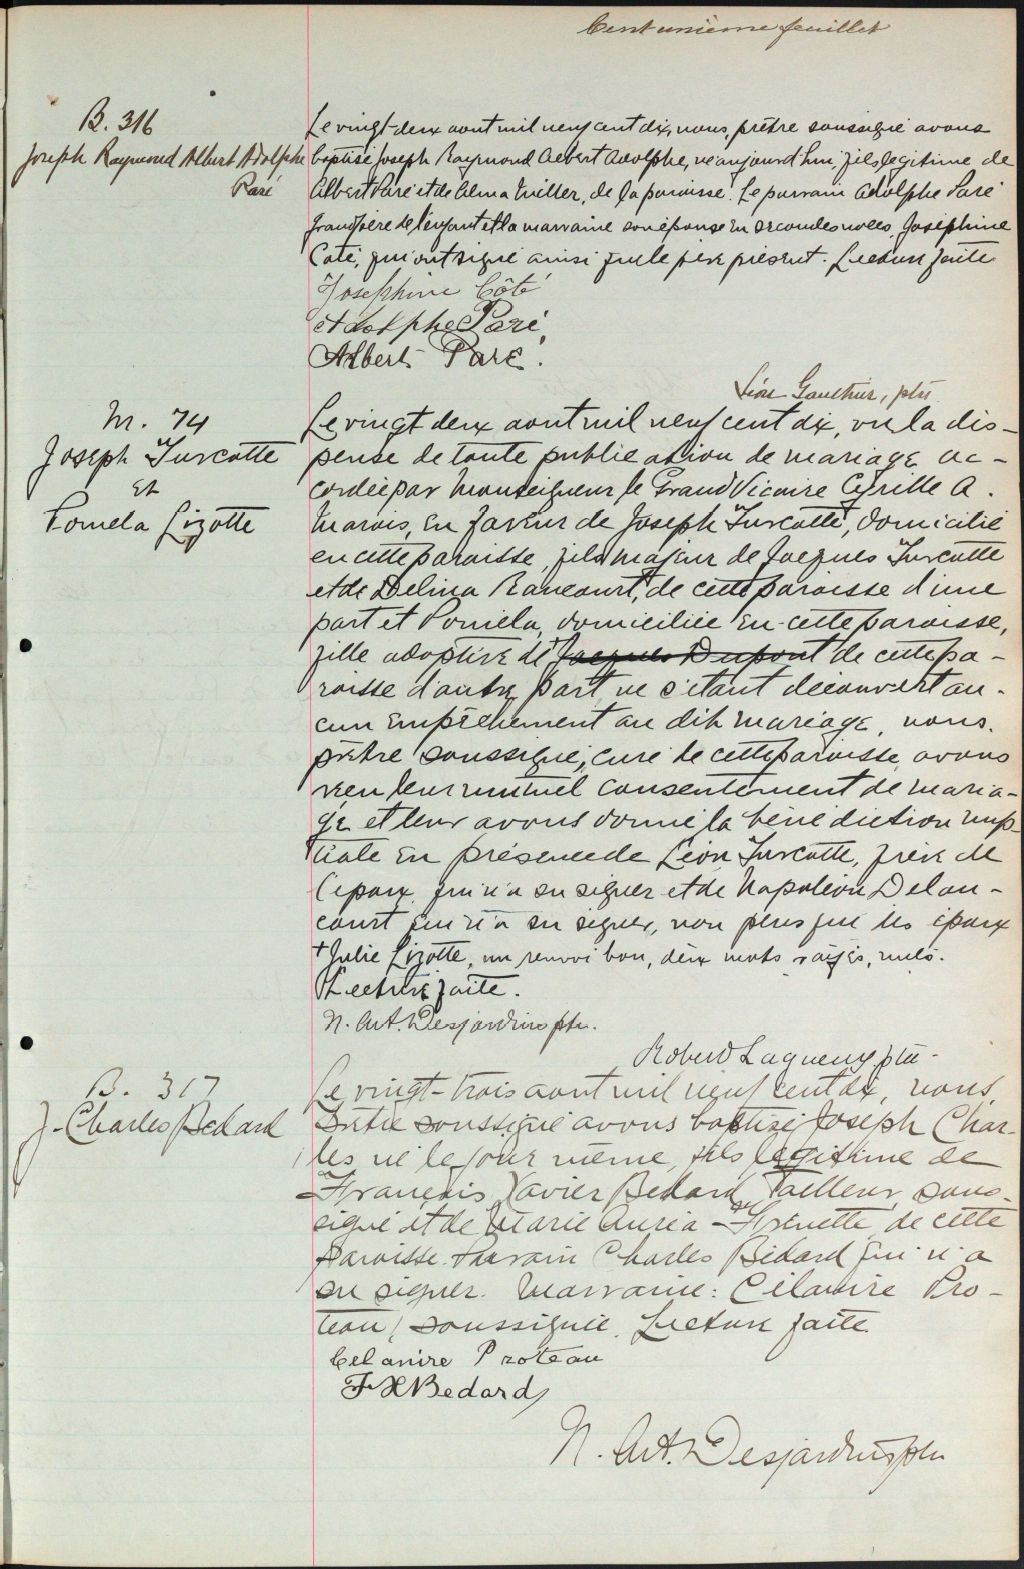 Cent unième feuillet
B. 316
Joseph Raymond Albert Adolphe
Paré
Le vingt-deux aout mil neuf cent dix, nous, prêtre soussigné avons
baptisé Joseph Raymond Albert Adolphe, né aujourd'hui, fils légitime de
Albert Paré et de Alma Miller, de la paroisse. Le parrain Adolphe Paré
grand père de l'enfant et la marraine son épouse en secondes noces, Joséphine
Coté, qui ont signé ainsi que le père présent. Lecture faite
Josephine Côté
Adolphe Paré
Albert Paré.
Léon Gauthier, ptre
M. 74
Joseph Turcotte
et
Pomela Lizotte
Le vingt deux aout mil neuf cent dix, vu la dis-
pense de toute publication de mariage ac-
cordée par Monseigneur le Grand Vicaire Cyrille A.
Marois, en faveur de Joseph Turcotte, domicilié
en cette paroisse, fils majeur de Jacques Turcotte
et de Delina Rancourt, de cette paroisse d'une
part et Pomela, domiciliée en cette paroisse,
fille adoptive de + Jacques Dupont de cette pa-
roisse d'autre part ne s'étant découvert au-
cun empêchement au dit mariage, nous,
prêtre soussigné, curé de cette paroisse, avons
reçu leur mutuel consentement de maria-
ge et leur avons donné la bénédiction nup-
tiale en présence de Léon Turcotte, frère de
l'époux, qui n'a su signer et de Napoléon Delau-
court qui n'a su signer, non plus que les époux
+ Julie Lizotte, un renvoi bon, deux mots rayés, nuls.
Lecture faite.
N. Art. Desjardins ptr.
Robert Lagueux ptre
B. 317
J-Charles Bedard
Le vingt-trois aout mil neuf cent dix, nous,
Prêtre soussigné avons baptisé Joseph Char-
les né le jour même, fils légitime de
François Xavier Bedard, Tailleur, sous-
signé et de Marie Auréa Frenette, de cette
Paroisse. Parrain Charles Bédard qui n'a
su signer. Marraine: Célanire Pro-
teau, soussignée. Lecture faite
Celanire Proteau
F X Bedard
N. Art. Desjardins ptr